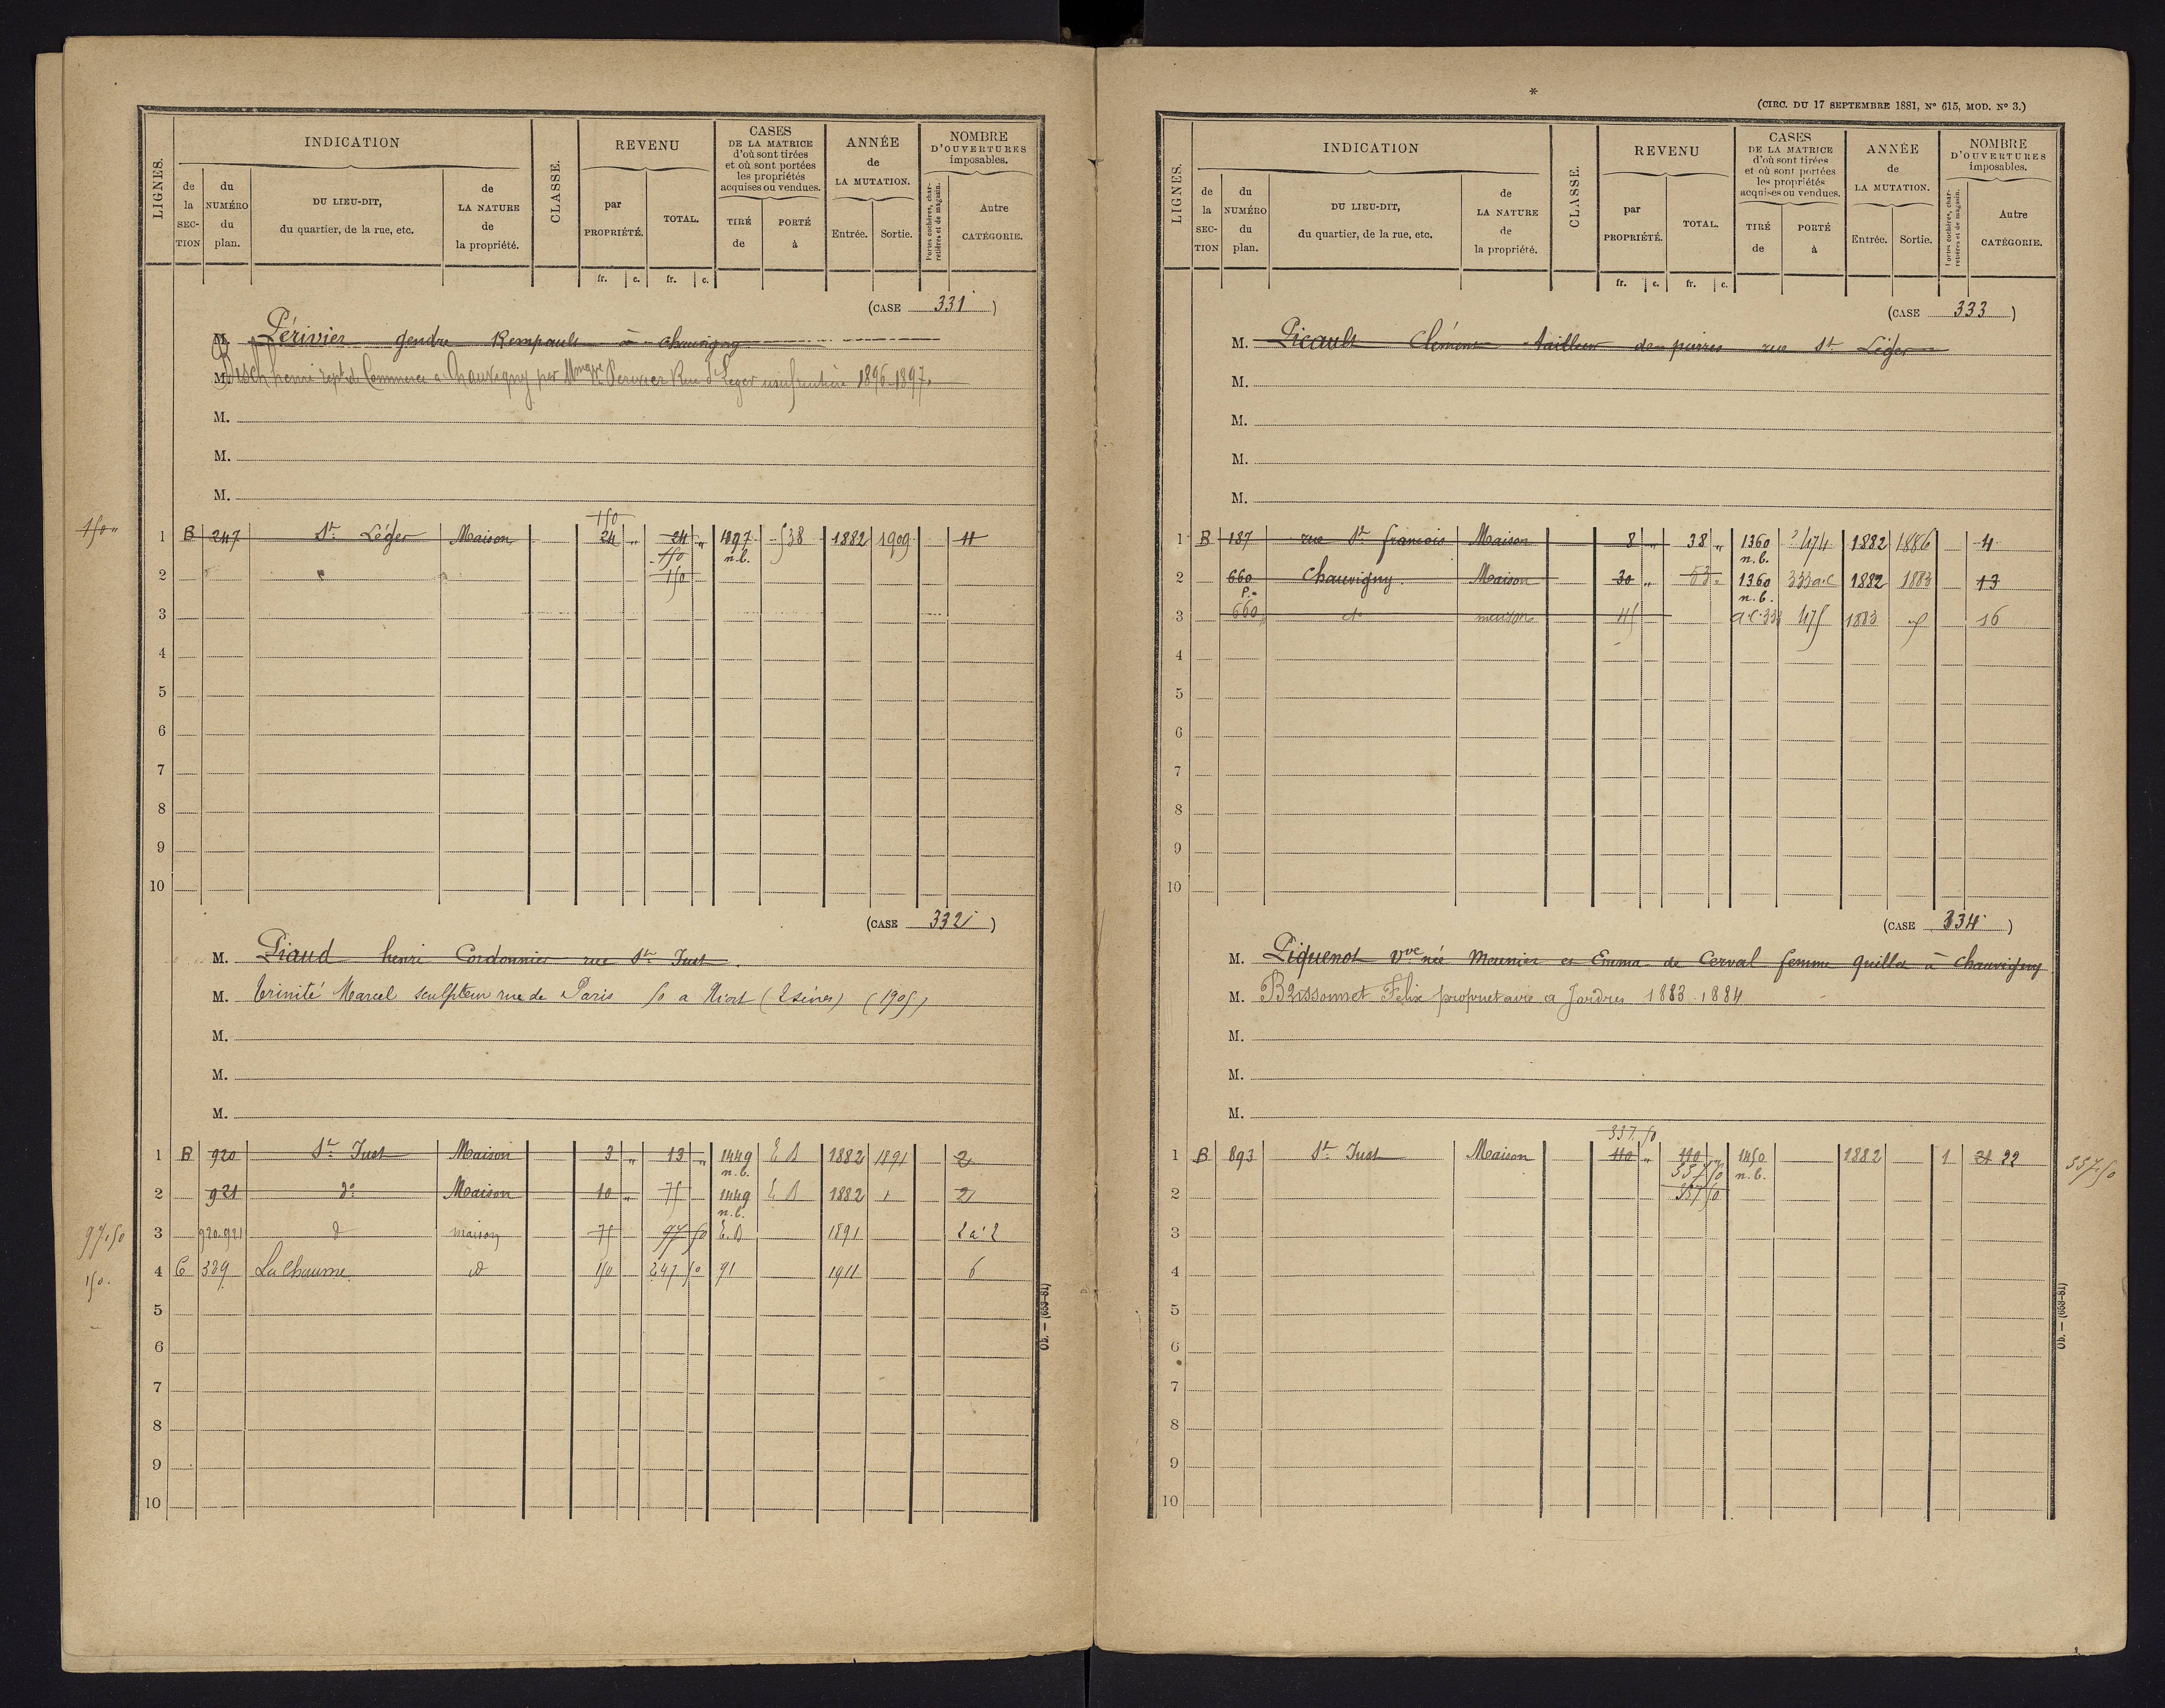 LIGNES. INDICATION CLASSE. REVENU CASES DE LA MATRICE d'où sont tirées et où sont portées les propriétés acquises ou vendues. ANNÉE de LA MUTATION. NOMBRE D'OUVERTURES imposables.
de la SECTION du NUMÉRO du plan. DU LIEU-DIT, du quartier, de la rue, etc. de LA NATURE de la propriété. par PROPRIÉTÉ. TOTAL. TIRÉ de PORTÉ à Entrée. Sortie. Portes cochères, charretières et de magasin. Autre CATÉGORIE.
fr. c. fr. c.
(CASE 331)
M. Périvier gendre Rempault à chauvigny
M. henri rept de Commerce a Chauvigny par Rue St Leger usufruitière 1896-1897.
M.
M.
M.
150
150 "
1 B 247 St Léger Maison 24 " 24 " n.b. 538 1882 1909 11
150
2 150
3
4
5
6
7
8
9
10
(CASE 332)
M. Piaud henri Cordonnier rue St Just.
M. Trinité Marcel sculpteur rue de Paris 50 a Niort (2 sèvres) (1905)
M.
M.
M.
1 B 920 St Just Maison 3 " 13 " 1449 n.b. E D 1882 1891 2
2 921 do Maison 10 " 75 1449 n.b. E D 1882 2
97.50 3 920.921 d maison 75 97 50 E.D 1891 2 à 2
150. 4 C 389 La Chaume d 150 247 50 91 1911 6
5
6
7
8
9
10
Ob. — (653-81)
*
(CIRC. DU 17 SEPTEMBRE 1881, N° 615, MOD. N° 3.)
LIGNES. INDICATION CLASSE. REVENU CASES DE LA MATRICE d'où sont tirées et où sont portées les propriétés acquises ou vendues. ANNÉE de LA MUTATION. NOMBRE D'OUVERTURES imposables.
de la SECTION du NUMÉRO du plan. DU LIEU-DIT, du quartier, de la rue, etc. de LA NATURE de la propriété. par PROPRIÉTÉ. TOTAL. TIRÉ de PORTÉ à Entrée. Sortie. Portes cochères, charretières et de magasin. Autre CATÉGORIE.
fr. c. fr. c.
(CASE 333)
M. Picault Clément tailleur de pierres rue St Léger
M.
M.
M.
M.
1 B 187 rue St francois Maison 8 " 38 " 1360 n.b. 474 1882 1886 4
2 660 p. Chauvigny. Maison 30 " 53 " 1360 n.b. 333 a.c 1882 1883 13
3 660 do maison 45 a.c. 333 475 1883 16
4
5
6
7
8
9
10
(CASE 334)
M. Piquenot Vve née Meunier et Emma de Cerval femme Quilla à chauvigny
M. Brissonnet Felix propriétaire a Jardres 1883.1884
M.
M.
M.
337 50
1 B 893 St Just Maison 110 " 110 " 1450 n.b. 1882 1 21 22
337 50
337.50
2 337 50
3
4
5
6
7
8
9
10
Ob. — (653-81)